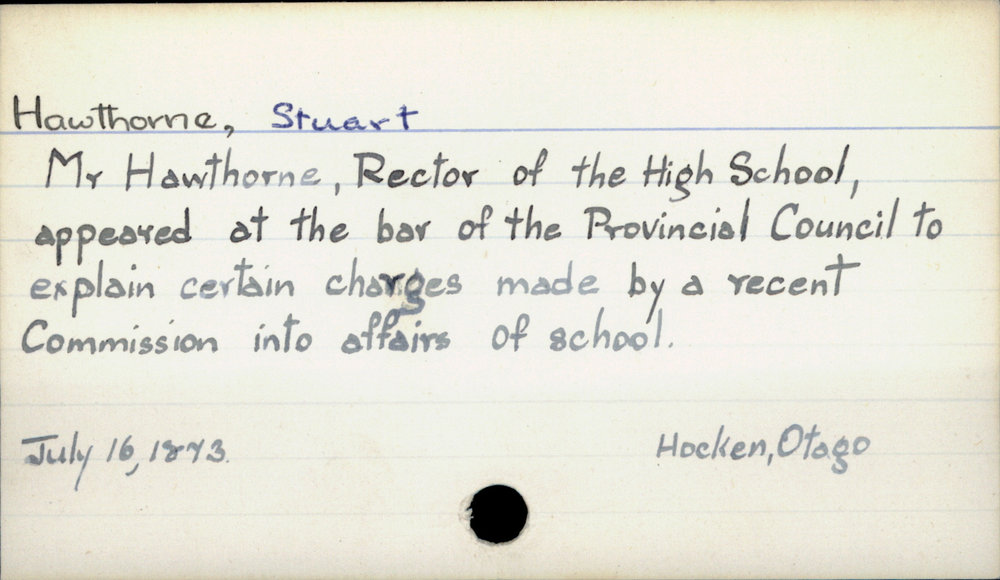 Hawthorne, Stuart
Mr Hawthorne, Rector of the High School,
appeared at the bar of the Provincial Council to
explain certain charges made by a recent
Commission into affairs of school.
July 16, 1873.
Hocken, Otago